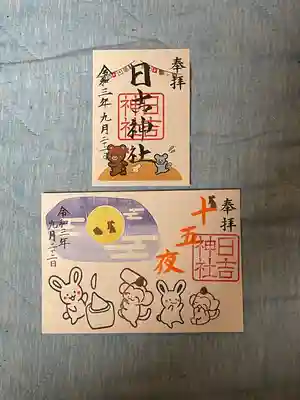 奉拝
日吉神社
日吉
神社
令和三年九月二十二日
奉拝
十五夜
日吉
神社
令和三年
九月二十二日